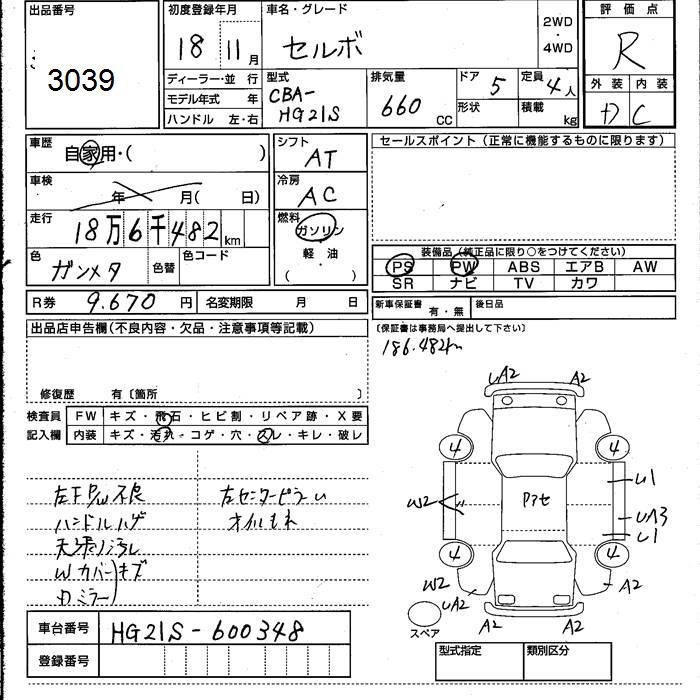 出品番号
3039
初度登録年月
18 11月
車名・グレード
セルボ
2WD
・
4WD
評価点
R
ディーラー・並 行
モデル年式 年
ハンドル 左・右
型式
CBA-
HG21S
排気量
660 CC
ドア
5
形状
定員
4人
積載
kg
外装 内装
C
車歴
自家用・( )
車検
年 月( 日)
走行
18万6千482km
色
ガンメタ
色替
色コード
シフト
AT
冷房
AC
燃料
ガソリン
軽・油
( )
セールスポイント(正常に機能するものに限ります)
装備品(純正品に限り○をつけてください)
PS PW ABS エアB AW
SR ナビ TV カワ
R券 9.670 円 名変期限 月 日
新車保証書
有・無
後日品
出品店申告欄(不良内容・欠品・注意事項等記載)
(保証書は事務局へ提出して下さい)
186.482km
修復歴 有〔箇所 〕
検査員
記入欄
FW キズ・飛石・ヒビ割・リペア跡・X要
内装 キズ・汚れ・コゲ・穴・スレ・キレ・破レ
左F P/W不良
ハンドルハゲ
天張り汚レ
Wカバーキズ
ミラー
左センターピラー
オイルもれ
A2 A2
4 4
U1
W2
Pアセ
UA3
U1
4 4
W2
UA2
A2
A2 A2
スペア
車台番号 HG21S-600348
登録番号
型式指定 類別区分